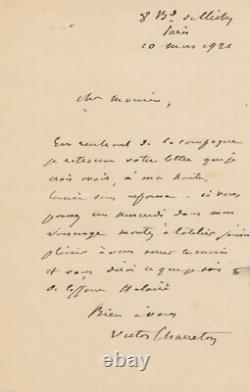 8 Bd de Clichy
Paris
10 mars 1921
cher monsieur,
En rentrant de la campagne
je retrouve votre lettre que je
crois avoir, à ma honte,
laissée sans réponse. si vous
passez un mercredi dans mon
voisinage montez à l'atelier j'aurai
plaisir à vous serrer la main
et vous dirai ce que je sais
de
Bien à vous
Victor Charreton
ebay